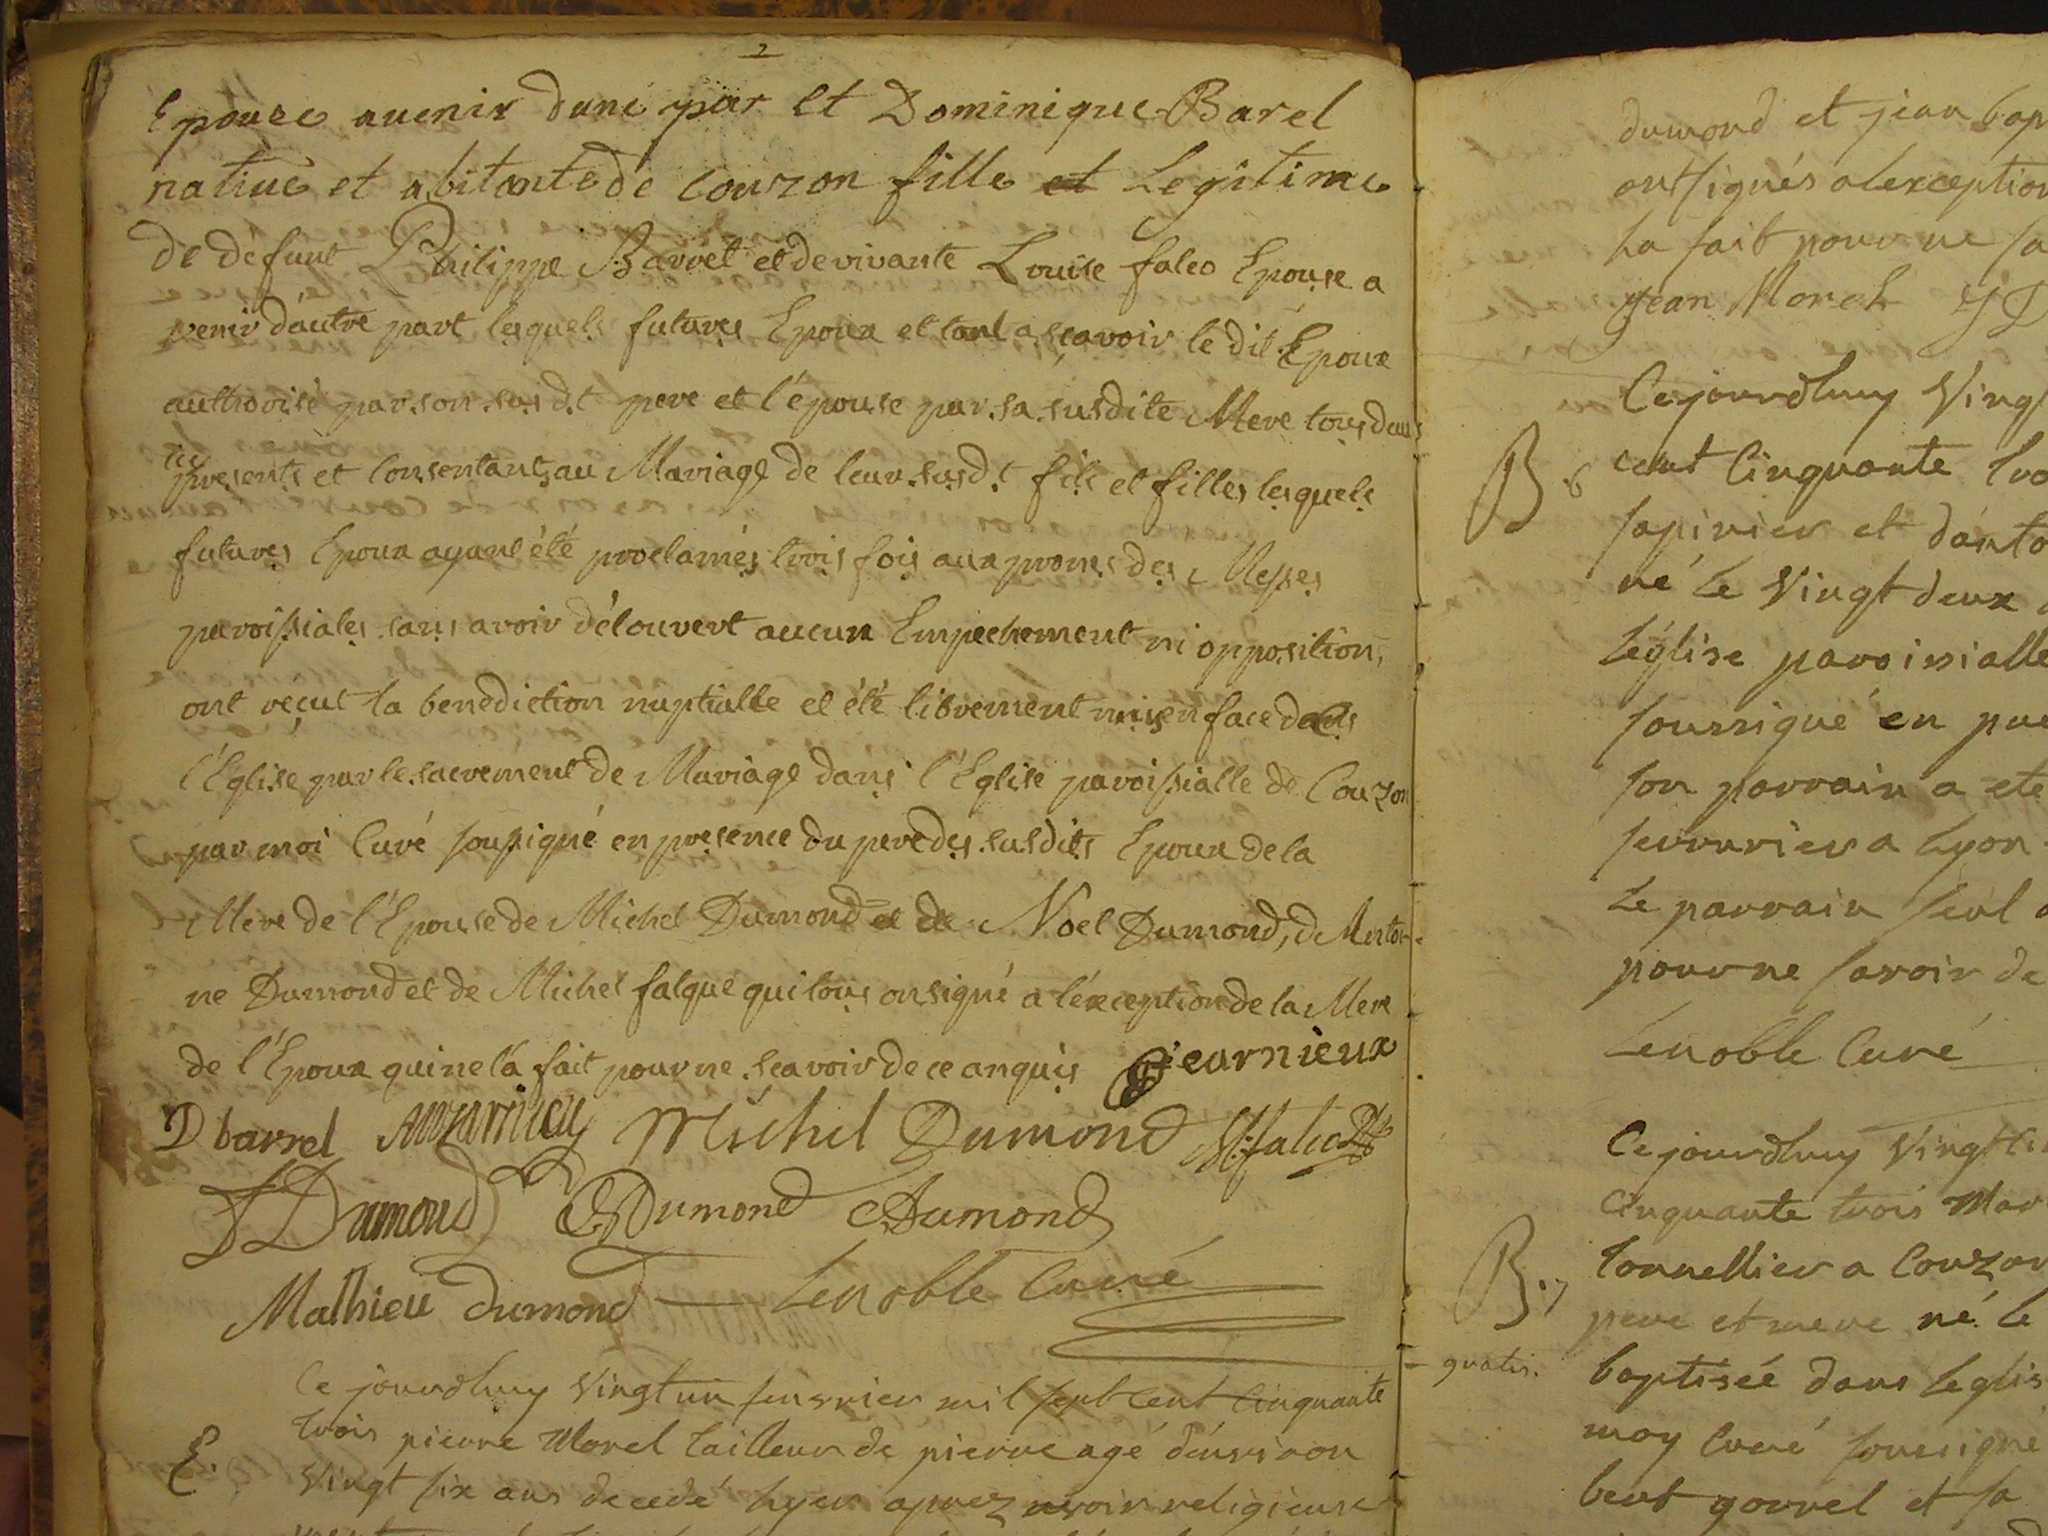 2
Epouze auenir dune par et Dominique Barel
natiue et abitante de couzon fille et Legitime
de défunt Philippe Barret et de vivante Louise falco Epouse a
venir dáutre part lesquels futures Epoux et tant a sçavoir le dit Epoux
authorisé par son susd.t pere et l'épouse par sa susdite Mere tous deux
icy presents et Consentants au Mariage de leur susd.t fils et filles lesquels
futures Epoux ayant été proclamés trois fois aux prones des Messes
paroissiales sans avoir découvert aucun Empechement ni opposition,
ont reçut la benediction nuptialle et été librement mis en face dans
l'Eglise par le sacrement de Mariage dans l'Eglise paroissialle de Couzon
par moi Curé soussigné en presence du pere des susdits Epoux de la
Mere de l'Epouse de Michel Dumond et de Noel Dumond, d
ne Dumond et de Michel falque qui tous on signé a léxception de la Mere
de l'Epoux qui ne la fait pour ne scavoir de ce anquis
D barrel Michel Dumond M: falco
Dumond Dumond Dumond
Mathieu dumond Lenoble Curé
Ce jourdhuy Vingt un feuvrier mil sept Cent Cinquante
E. trois pierre Morel tailleur de pierre agé dénviron
Vingt six ans decedé hyer aprez avoir religieuse
dumond et jean bap
ont signés aléxception
la fait pour ne sa
jean Morel JD
Ce jourdhuy Vingt
B. 6 cent Cinquante tro
né le Vingt deux
Léglise paroissialle
soussigné en pre
son parrain a ete
serrurier a Lyon
Le parrain seul a
pour ne savoir de
Lenoble Curé
Ce jourdhuy Vingt
Cinquante trois Mar
B. 7 tonnellier a Couzon
pere et mere né le
gratis. baptisée dans leglis
moy Curé soussigné
et sa